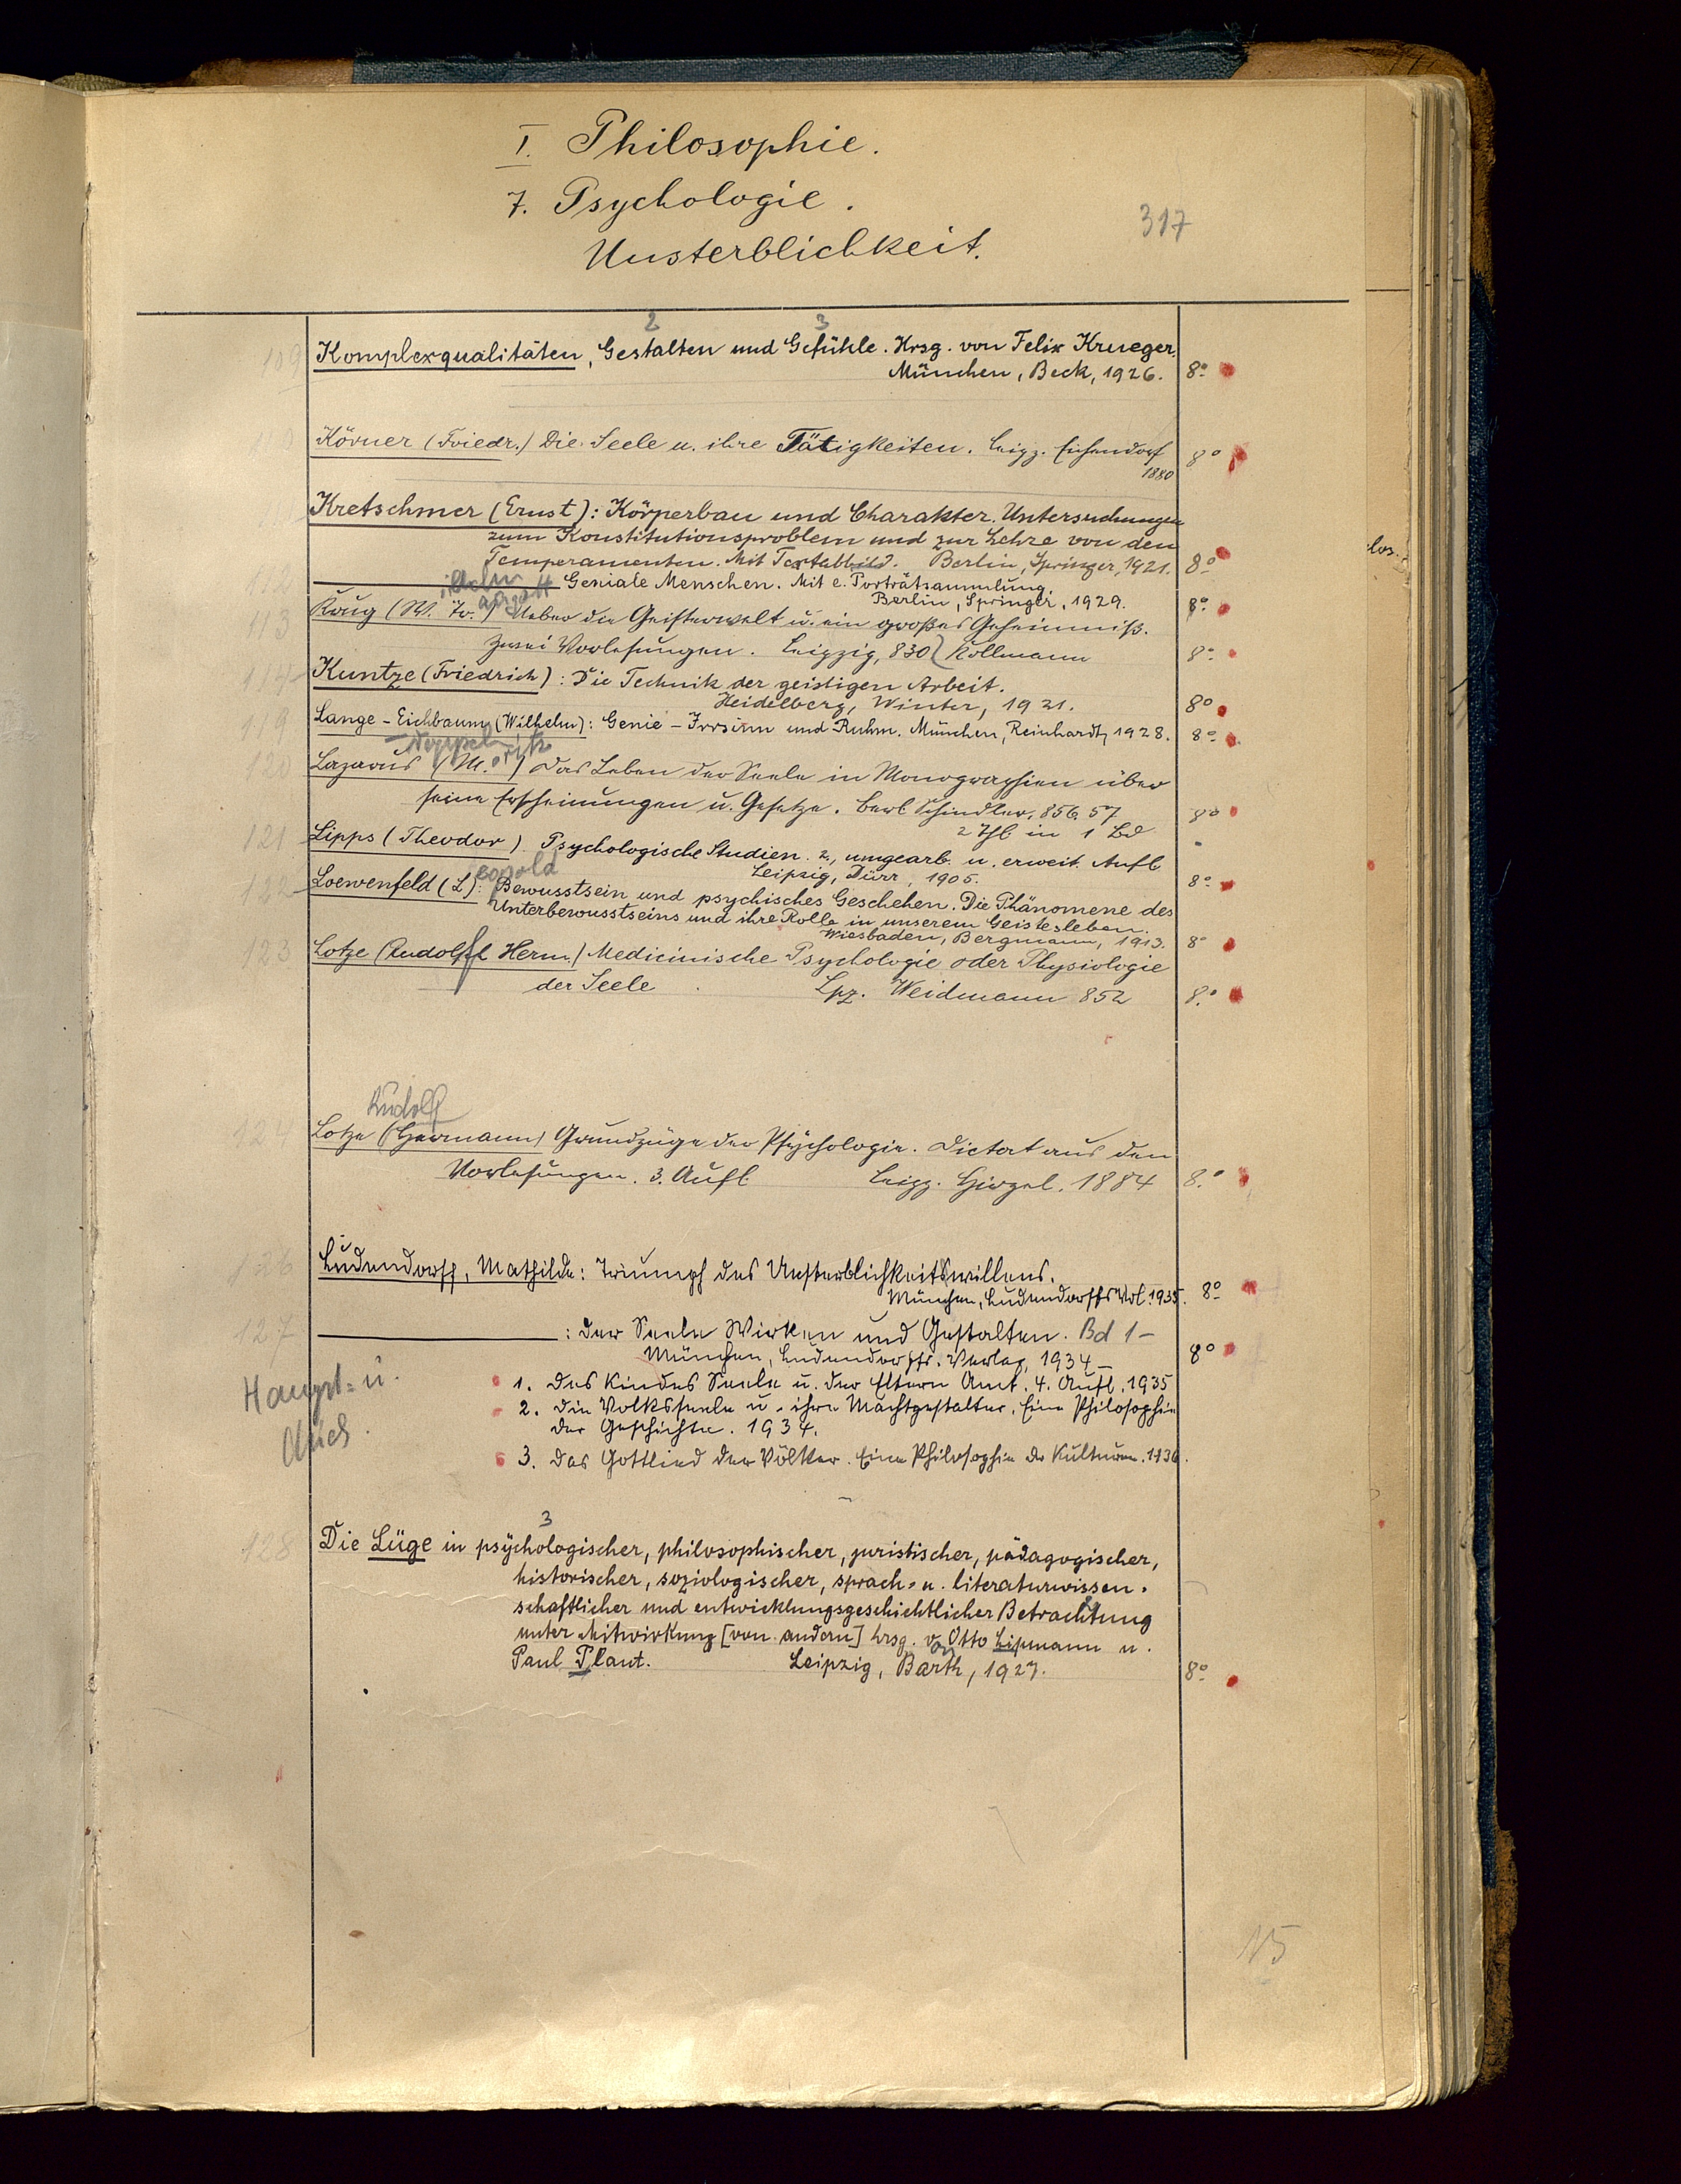 I. Philosophie.
7. Psychologie.
317
Unsterblichkeit.
2 3
109 Komplexqualitäten, Gestalten und Gefühle. Hrsg. von Felix Krueger.
München, Beck, 1926. 8°
Körner (Friedr.) Die Seele u. ihre Tätigkeiten. Leipz. 8°
1880
Kretschmer (Ernst): Körperbau und Charakter. Untersuchungen
zum Konstitutionsproblem und zur Lehre von den
Temperamenten. Mit Textabbild. Berlin, Springer, 1921. 8°
112 Geniale Menschen. Mit e. Porträtsammlung.
Berlin, Springer, 1929. 8°
113 Krug (W. Tr.) Ueber die Geisterwelt u. ein großes Geheimniß.
Zwei Vorlesungen. Leipzig, 830 Kollmann 8°
114 Kuntze (Friedrich): Die Technik der geistigen Arbeit.
Heidelberg, Winter, 1921. 8°
119 Lange-Eichbaum (Wilhelm): Genie-Irrsinn und Ruhm. München, Reinhardt, 1928. 8°
oritz
120 Lazarus (M.) Das Leben der Seele in Monographien über
seine Erscheinungen u. Gesetze. Berl. Schindler, 856, 57 8°
2 Thl in 1 Bd
121 Lipps (Theodor). Psychologische Studien. 2., umgearb. u. erweit. Aufl
Leipzig, Dürr, 1905. 8°
eopold
122 Loewenfeld (L): Bewusstsein und psychisches Geschehen. Die Phänomene des
Unterbewusstseins und ihre Rolle in unserem Geistesleben.
Wiesbaden, Bergmann, 1913. 8°
123 Lotze (Rudolf Herm.) Medicinische Psychologie oder Physiologie
der Seele Lpz. Weidmann 852 8°
Rudolf
124 Lotze (Hermann) Grundzüge der Psychologie. Dictat aus den
Vorlesungen. 3. Aufl Leipz. Hirzel. 1884 8°
126 Ludendorff, Mathilde: Triumph des Unsterblichkeitswillens.
München, Ludendorffs Vrl. 1935. 8°
127 : Der Seele Wirken und Gestalten. Bd 1-
München, Ludendorffs Verlag, 1934- 8°
Haupt- u.
1. Des Kindes Seele u. der Eltern Amt. 4. Aufl. 1935
2. Die Volksseele u. ihre Machtgestalter. Eine Philosophie
der Geschichte. 1934.
3. Das Gottlied der Völker. Eine Philosophie der Kulturen. 1936.
3
128 Die Lüge in psychologischer, philosophischer, juristischer, pädagogischer,
historischer, soziologischer, sprach- u. literaturwissen-
schaftlicher und entwicklungsgeschichtlicher Betrachtung
unter Mitwirkung [von andern] hrsg. von Otto Lipmann u.
Paul Plaut. Leipzig, Barth, 1927. 8°
15